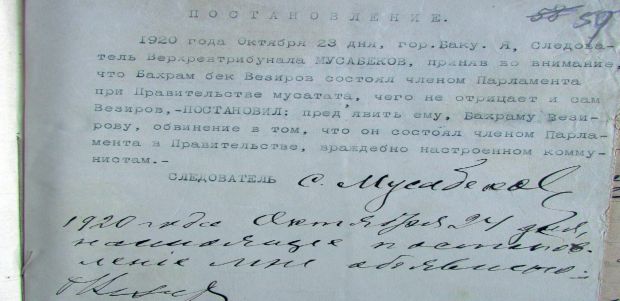 ПОСТАНОВЛЕНИЕ.
58 59
1920 года Октября 23 дня, гор.Баку. Я, Следова-
тель Верхревтрибунала МУСАБЕКОВ, приняв во внимание,
что Бахрам бек Везиров состоял членом Парламента
при Правительстве мусатата, чего не отрицает и сам
Везиров,-ПОСТАНОВИЛ: пред'явить ему, Бахраму Вези-
рову, обвинение в том, что он состоял членом Парла-
мента в Правительстве, враждебно настроенном комму-
нистам.-
СЛЕДОВАТЕЛЬ С. Мусабеков
1920 года Октября 24 дня,
настоящее постанов-
ление мне объявлено